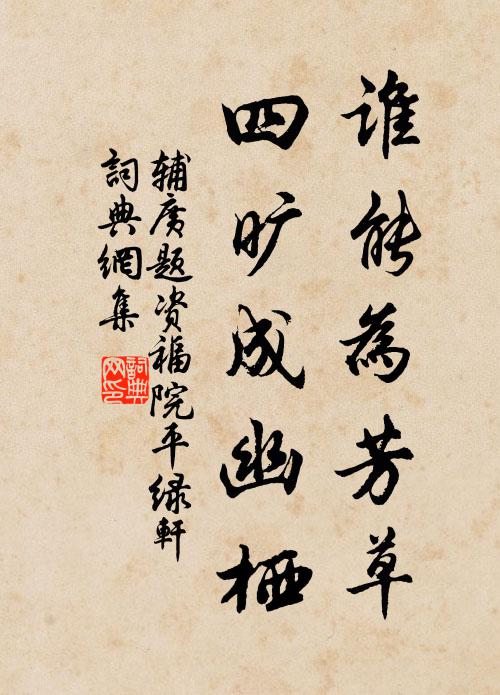 谁能為芳草
四旷成幽栖
辅廣题资福院平绿軒
詞典網集
詞典网印